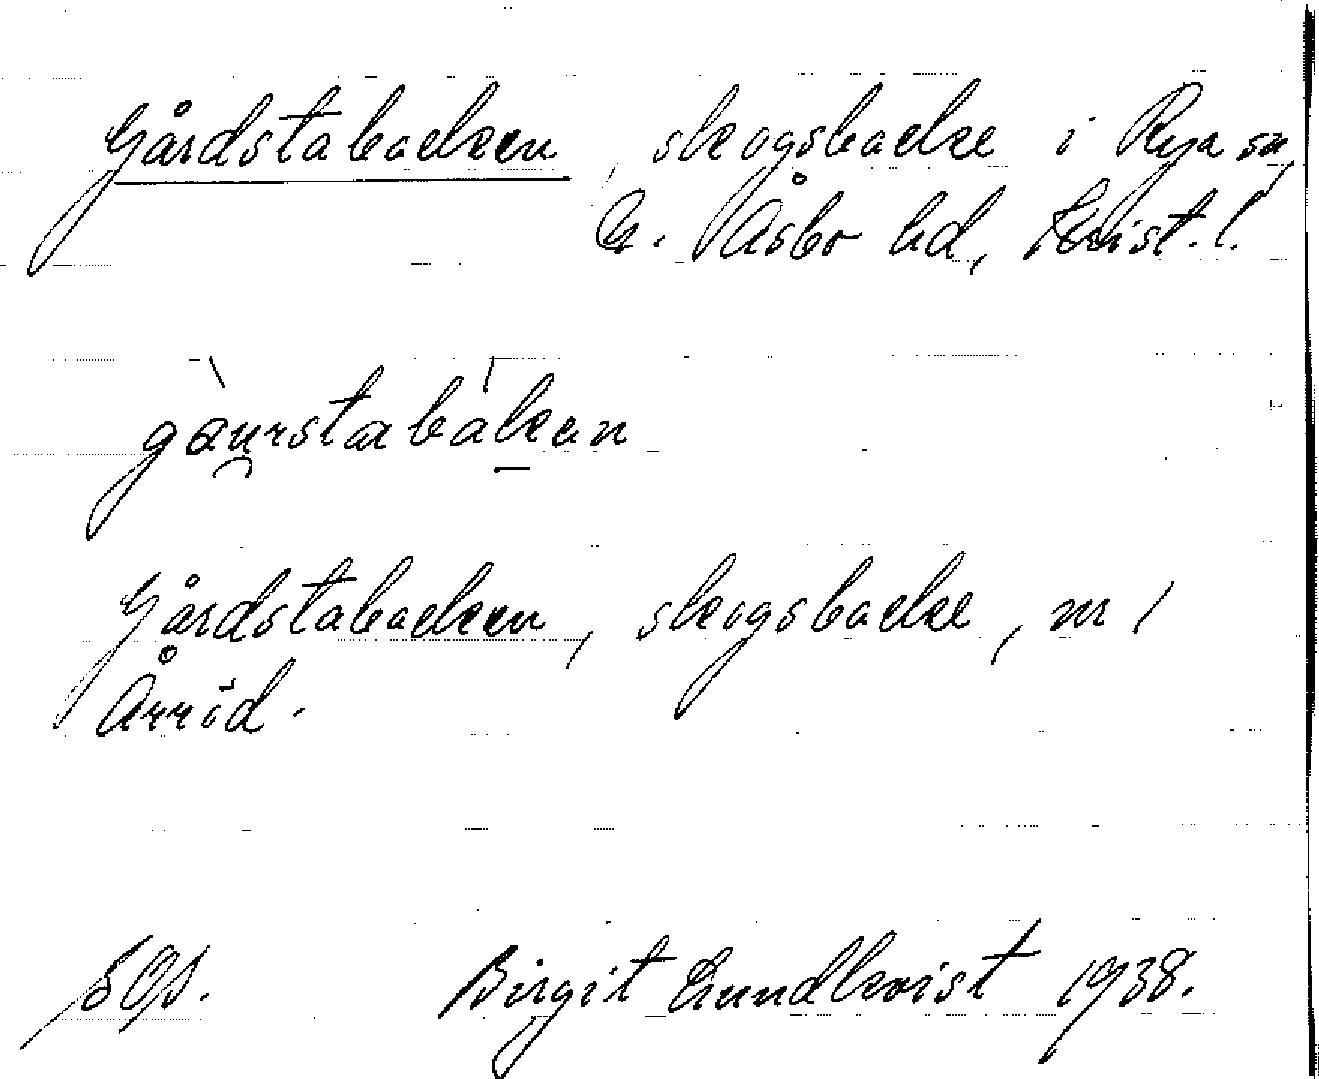 Gårdstabacken, skogsbacke i Rya sn,
N. Åsbo hd, Krist. l.
gau̯rstabaken
Gårdstabacken, skogsbacke, nr 1
Årröd.
Birgit Lundkvist 1938.